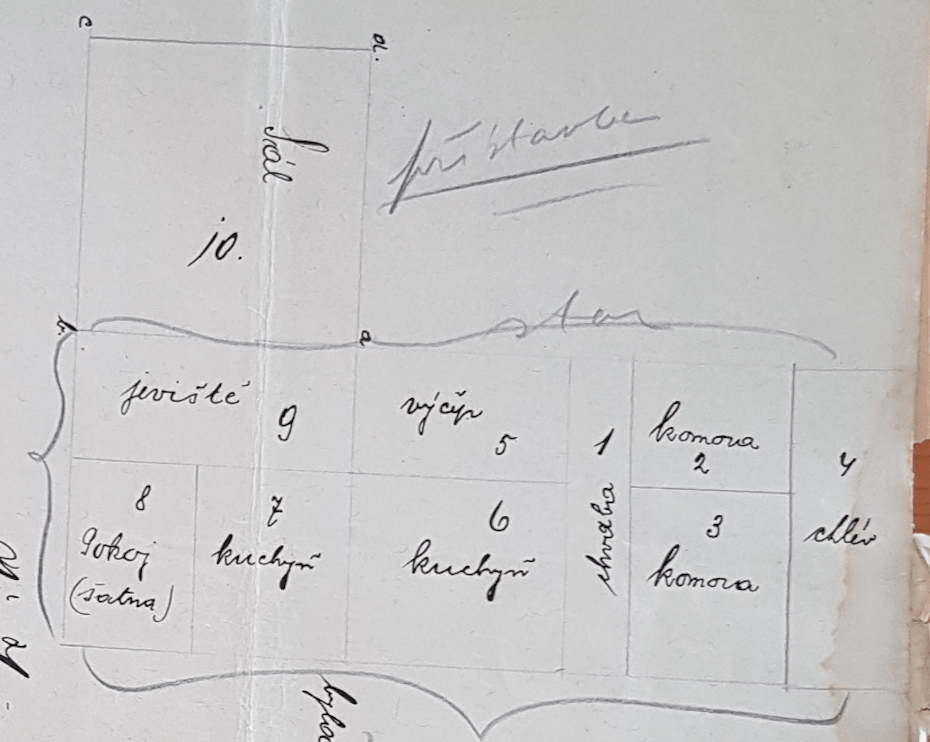 c
d.
Sál
10.
přístavba
b.
a
jeviště
9
výčep
5
1
chodba
komora
2
4
chlév
8
Pokoj
(šatna)
7
kuchyň
6
kuchyň
3
komora